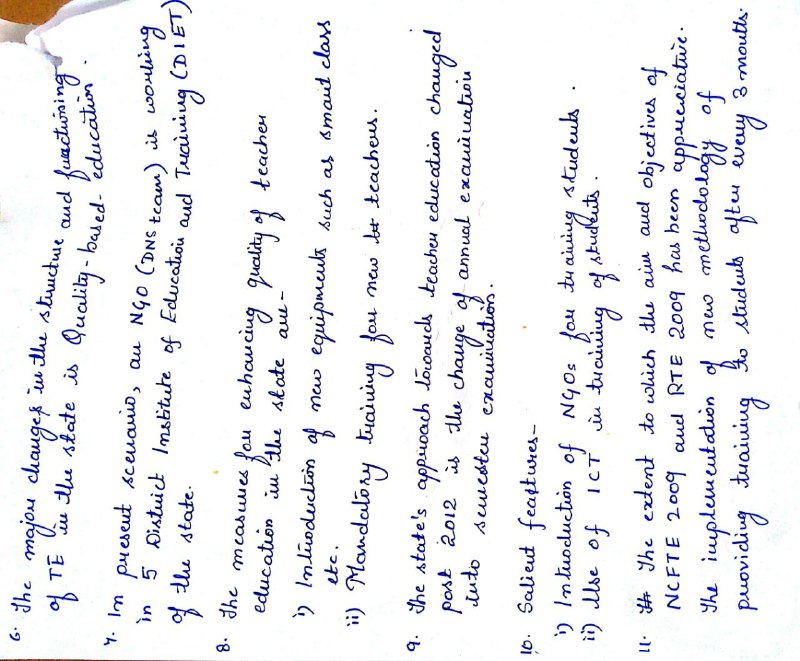 6. The major changes in the structure and functioning
of TE in the state is Quality-based-education.
7. In present scenario, an NGO (DNS team) is working
in 5 District Institute of Education and Training (DIET)
of the state.
8. The measures for enhancing quality of teacher
education in the state are-
i) Introduction of new equipments such as smart class
etc.
ii) Mandatory training for new teachers.
9. The state's approach towards teacher education changed
post 2012 is the change of annual examination
into semester examination.
10. Salient features-
i) Introduction of NGOs for training students.
ii) Use of ICT in training of students.
11. The extent to which the aim and objectives of
NCFTE 2009 and RTE 2009 has been appreciative.
The implementation of new methodology of
providing training to students after every 3 months.